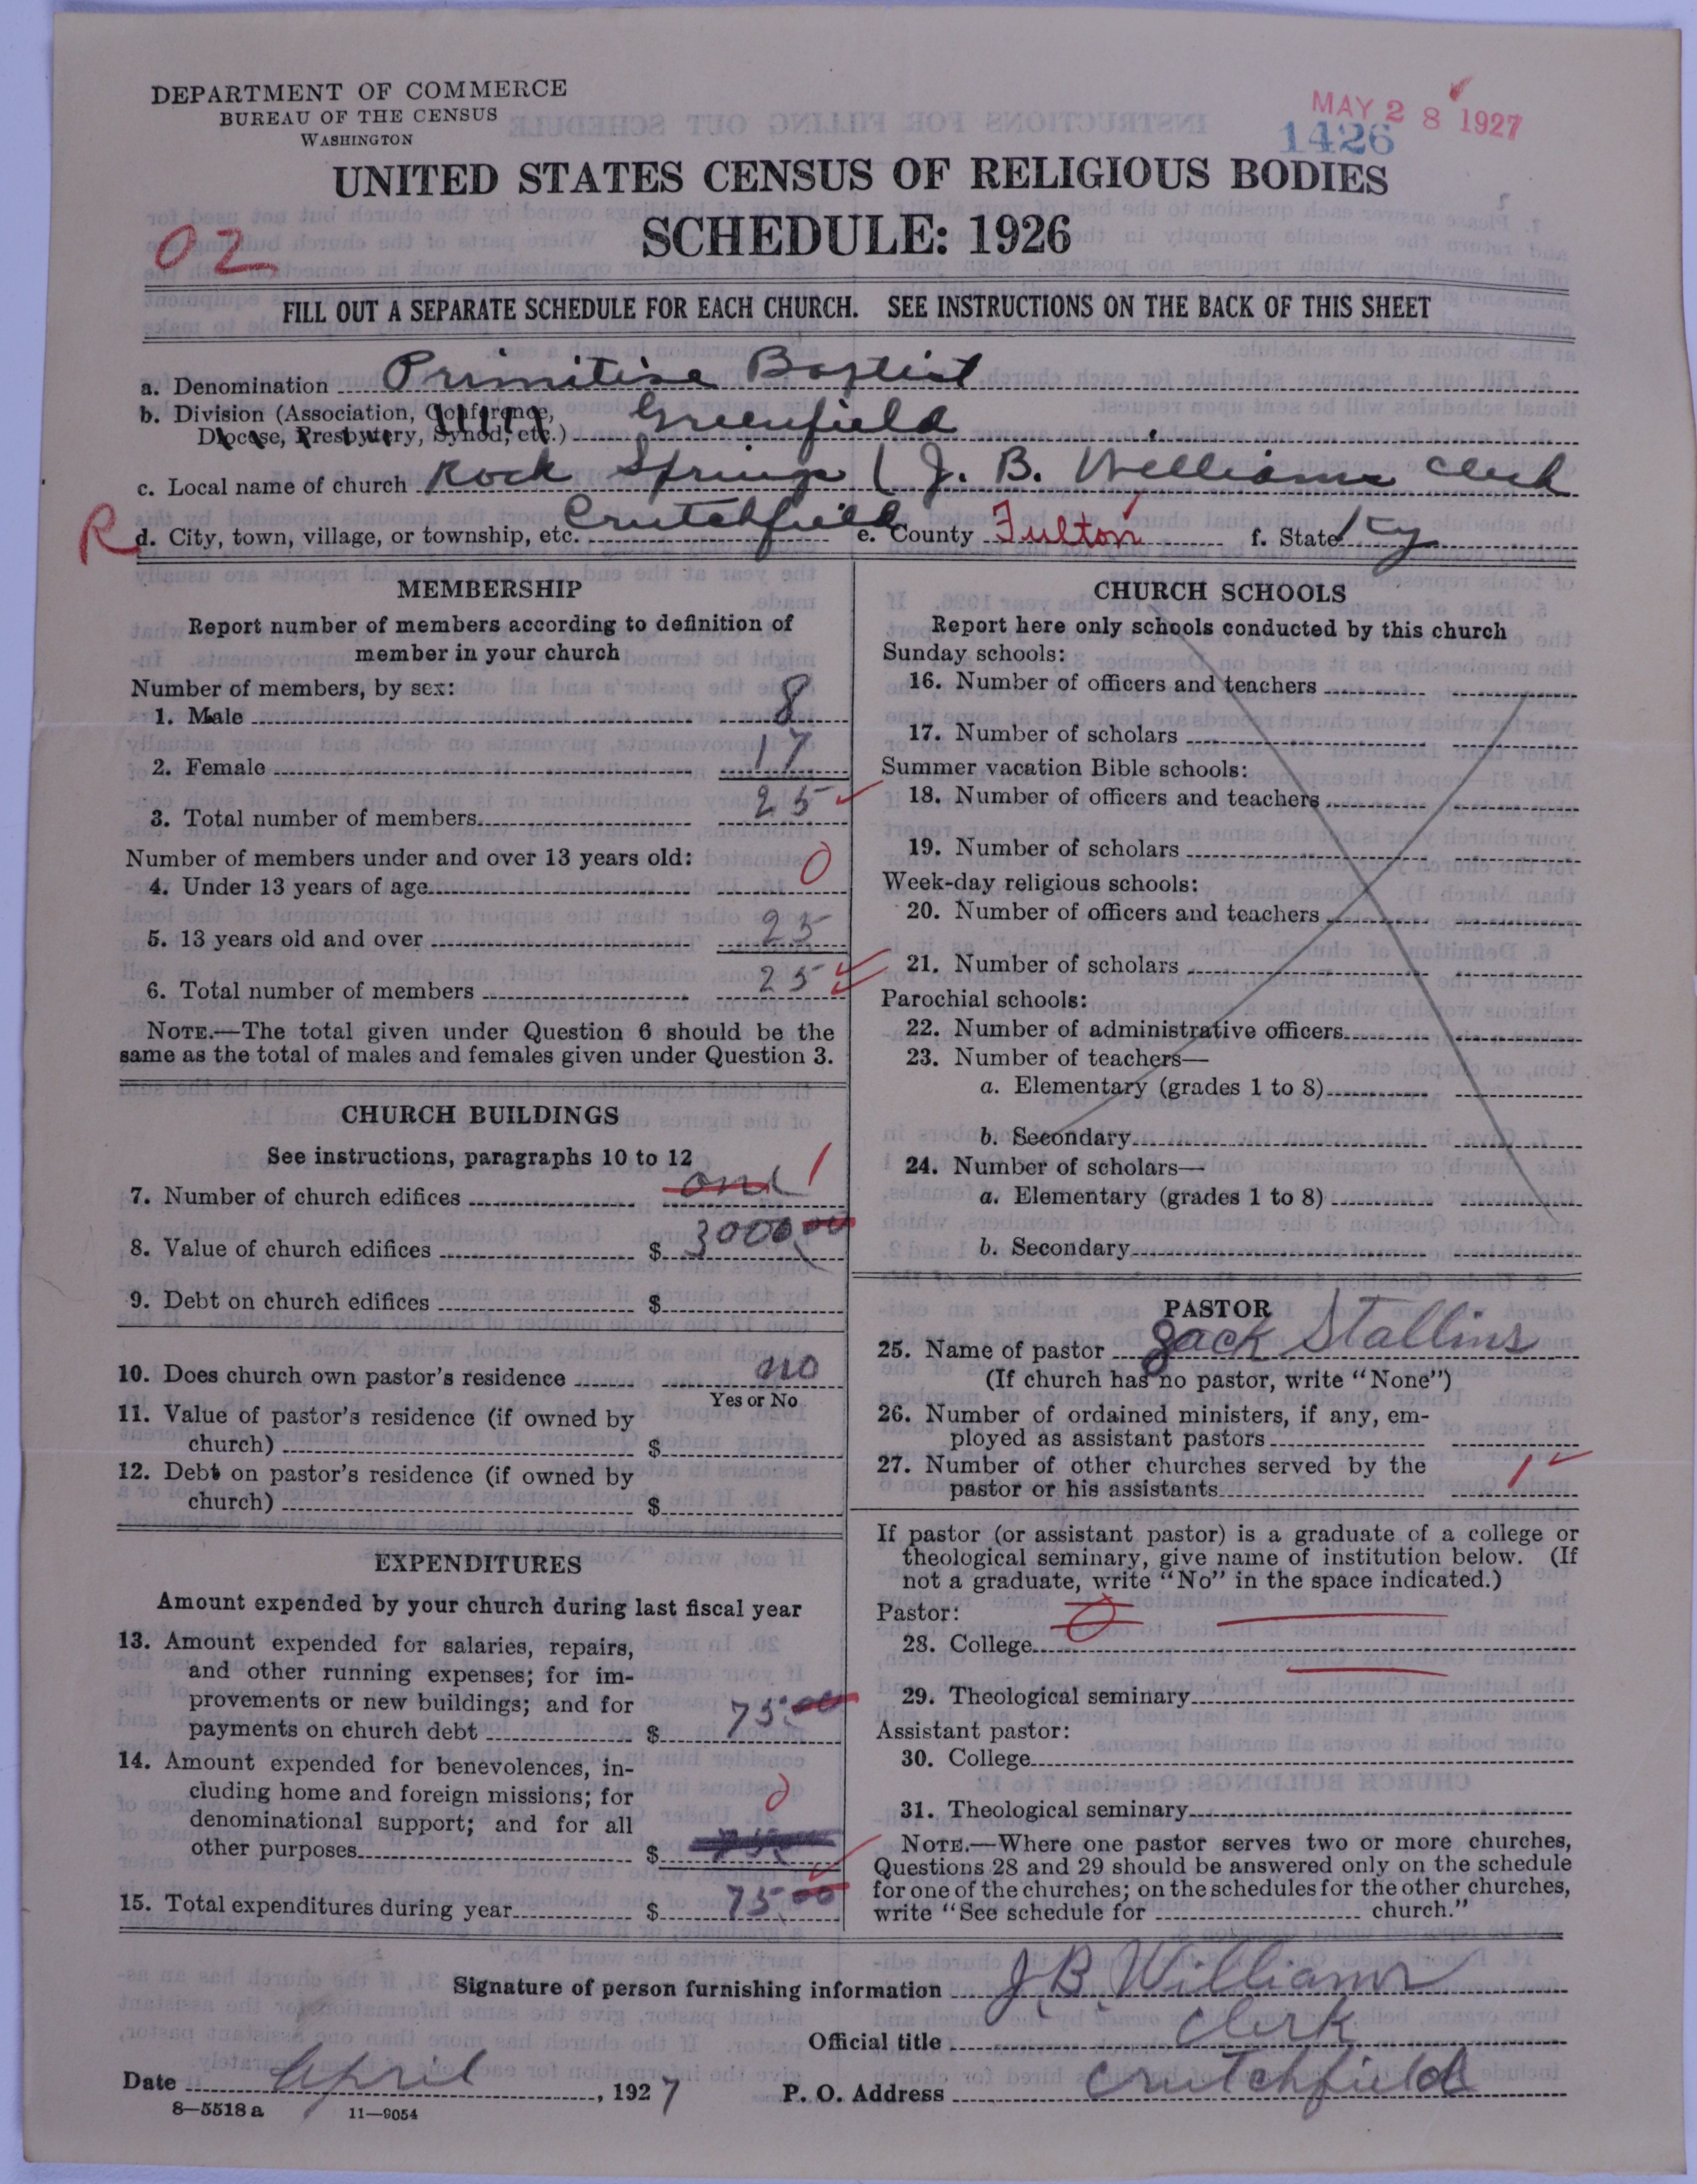 DEPARTMENT OF COMMERCE
BUREAU OF THE CENSUS
WASHINGTON
MAY 28 1927
1426
UNITED STATES CENSUS OF RELIGIOUS BODIES
SCHEDULE: 1926
02
FILL OUT A SEPARATE SCHEDULE FOR EACH CHURCH. SEE INSTRUCTIONS ON THE BACK OF THIS SHEET
a. Denomination Primitive Baptist
b. Division (Association, Conference,
Diocese, Presbytery, Synod, etc.) Greenfield
c. Local name of church Rock Springs (J. B. Williams Clerk
R d. City, town, village, or township, etc. Crutchfield e. County Fulton f. State Ky
MEMBERSHIP
Report number of members according to definition of
member in your church
Number of members, by sex:
1. Male 8
2. Female 17
3. Total number of members 25
Number of members under and over 13 years old:
4. Under 13 years of age 0
5. 13 years old and over 25
6. Total number of members 25
NOTE.—The total given under Question 6 should be the
same as the total of males and females given under Question 3.
CHURCH BUILDINGS
See instructions, paragraphs 10 to 12
7. Number of church edifices one 1
8. Value of church edifices $ 3000.00
9. Debt on church edifices $
10. Does church own pastor's residence no
Yes or No
11. Value of pastor's residence (if owned by
church) $
12. Debt on pastor's residence (if owned by
church) $
EXPENDITURES
Amount expended by your church during last fiscal year
13. Amount expended for salaries, repairs,
and other running expenses; for im-
provements or new buildings; and for
payments on church debt $ 75.00
14. Amount expended for benevolences, in-
cluding home and foreign missions; for
denominational support; and for all
other purposes $ 0
15. Total expenditures during year $ 75.00
CHURCH SCHOOLS
Report here only schools conducted by this church
Sunday schools:
16. Number of officers and teachers
17. Number of scholars
Summer vacation Bible schools:
18. Number of officers and teachers
19. Number of scholars
Week-day religious schools:
20. Number of officers and teachers
21. Number of scholars
Parochial schools:
22. Number of administrative officers
23. Number of teachers—
a. Elementary (grades 1 to 8)
b. Secondary
24. Number of scholars—
a. Elementary (grades 1 to 8)
b. Secondary
PASTOR
25. Name of pastor Jack Stallins
(If church has no pastor, write "None")
26. Number of ordained ministers, if any, em-
ployed as assistant pastors
27. Number of other churches served by the
pastor or his assistants 1
If pastor (or assistant pastor) is a graduate of a college or
theological seminary, give name of institution below. (If
not a graduate, write "No" in the space indicated.)
Pastor:
28. College 0
29. Theological seminary
Assistant pastor:
30. College
31. Theological seminary
NOTE.—Where one pastor serves two or more churches,
Questions 28 and 29 should be answered only on the schedule
for one of the churches; on the schedules for the other churches,
write "See schedule for church."
Signature of person furnishing information J. B. Williams
Official title Clerk
Date April, 1927 P. O. Address Crutchfield
8—5518 a 11—9054